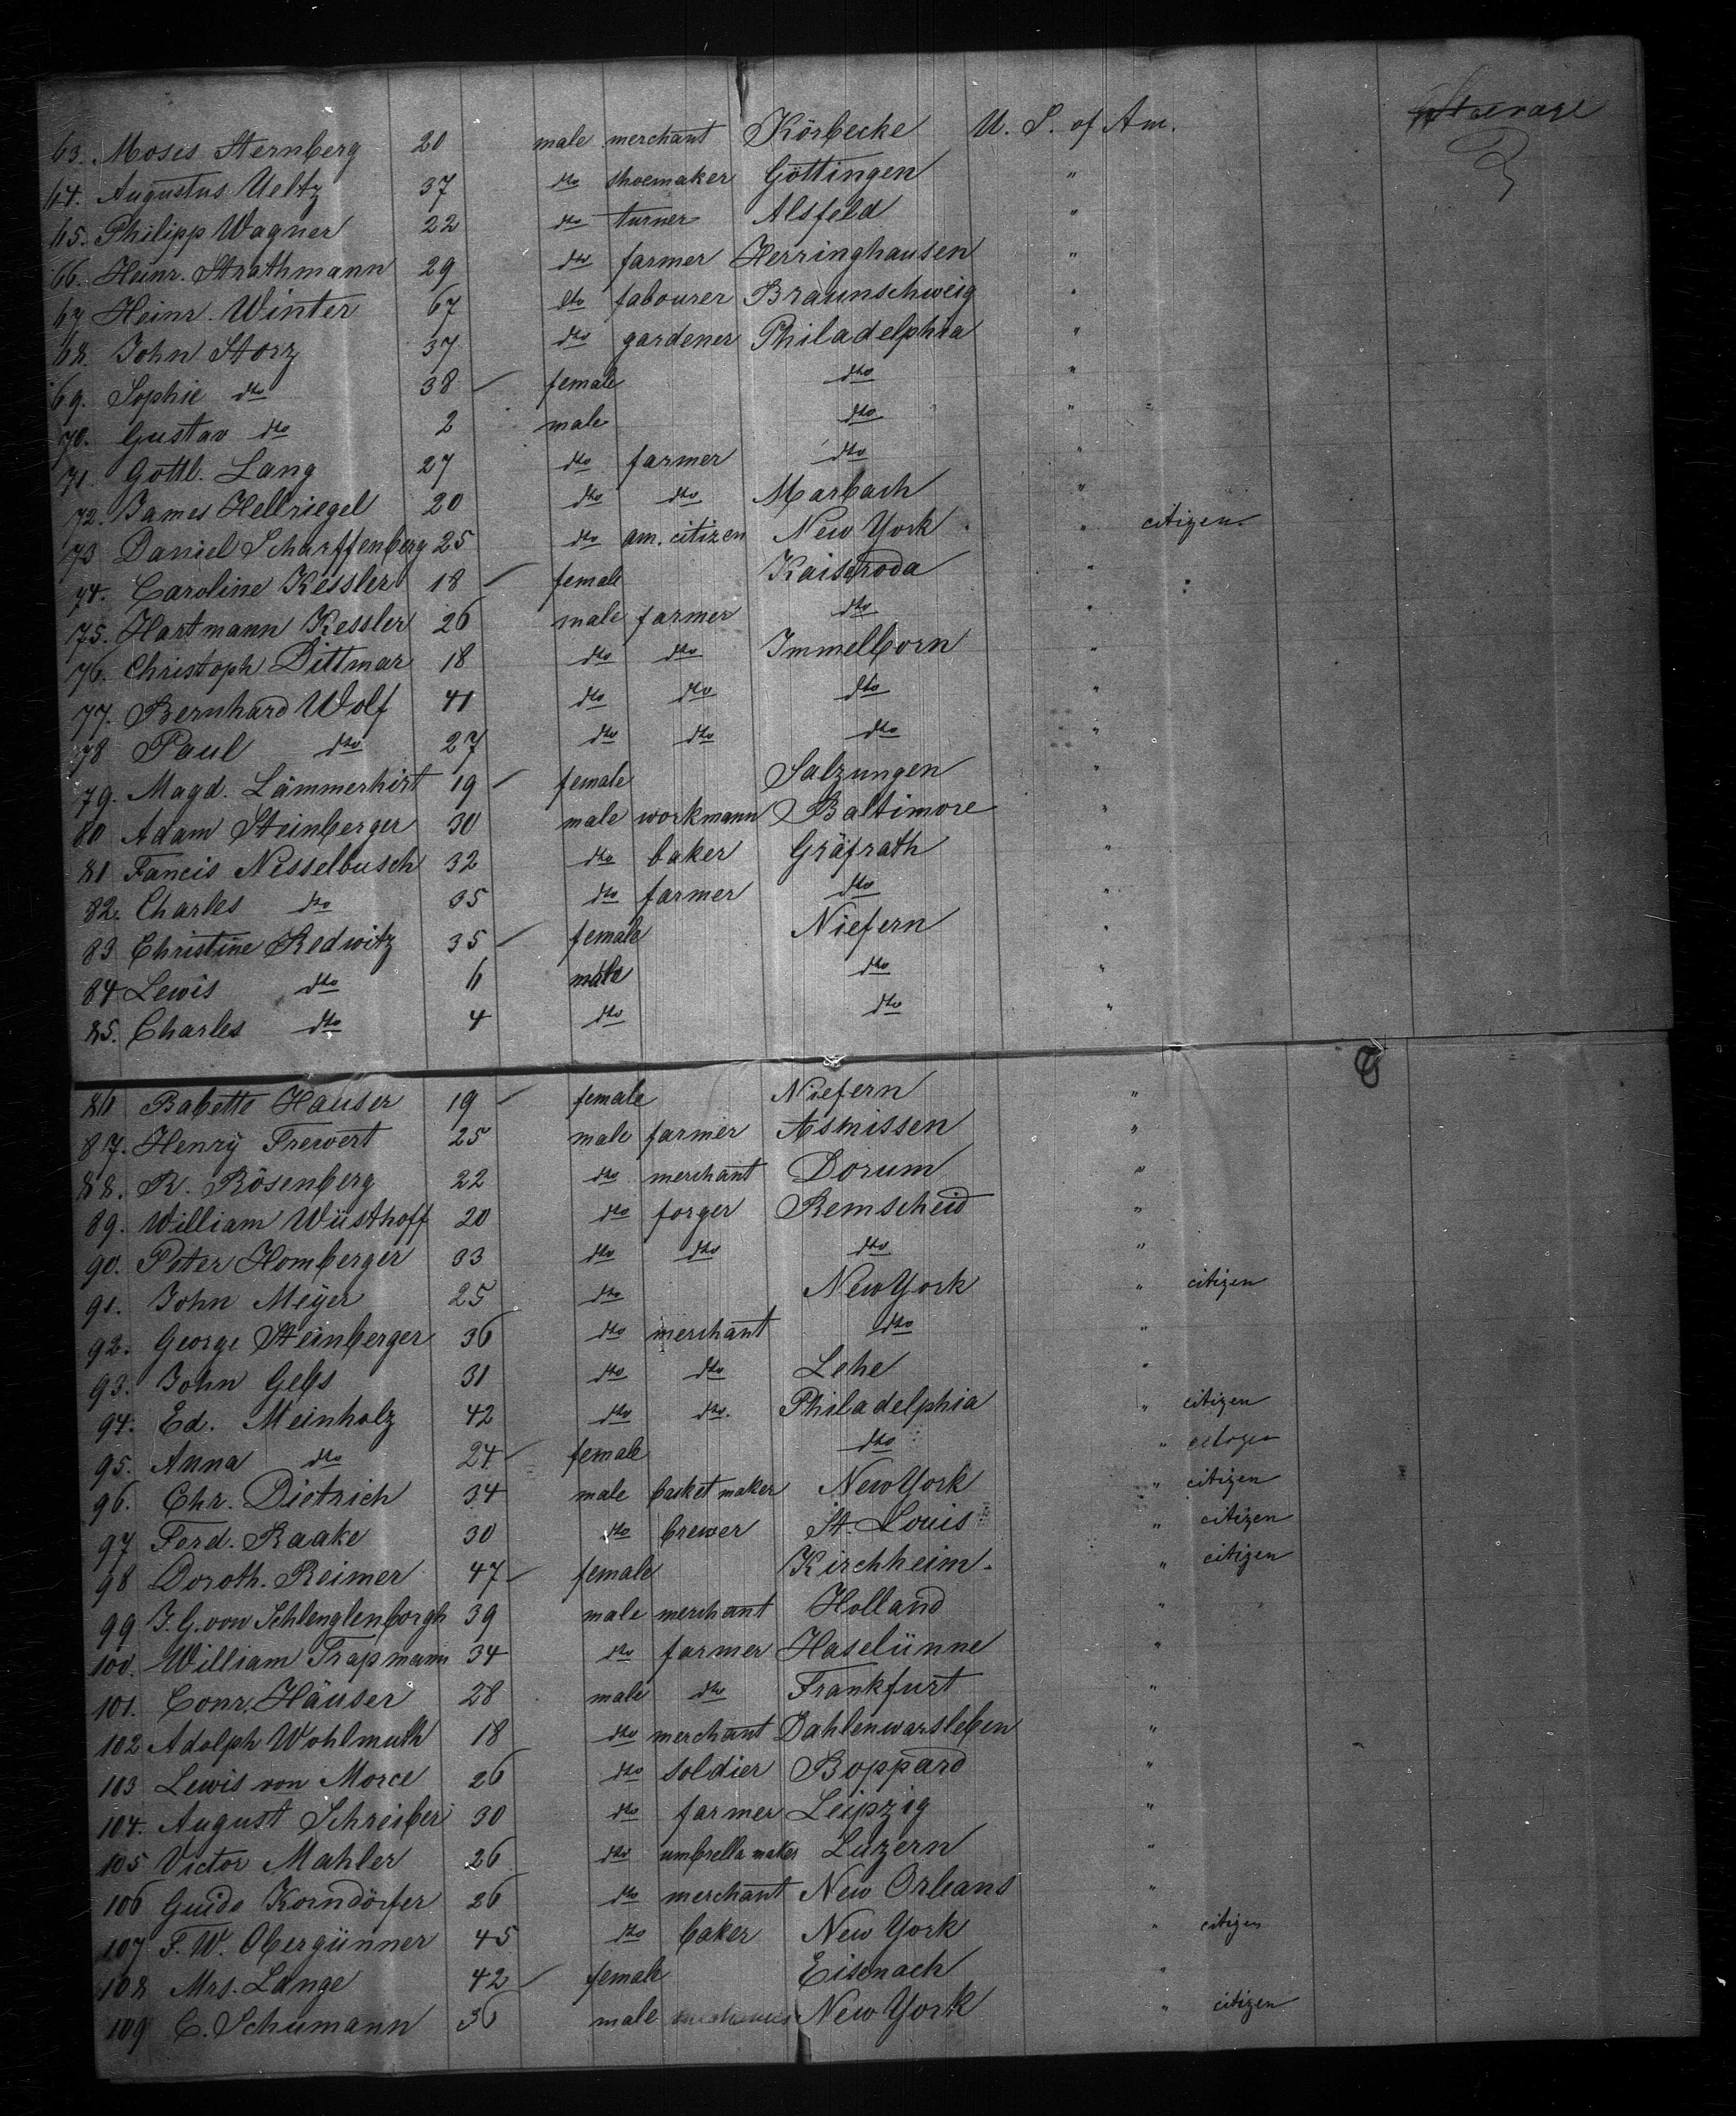 Steerage
63. Moses Sternberg 20 male merchant Körbecke U. S. of Am.
64. Augustus Ueltz 37 dto shoemaker Göttingen "
65. Philipp Wagner 22 dto turner Alsfeld "
66. Heinr. Strathmann 29 dto farmer Herringhausen "
67 Heinr. Winter 67 dto labourer Braunschweig "
68. John Storz 37 dto gardener Philadelphia "
69. Sophie dto 38 female dto "
70. Gustav dto 2 male dto "
71. Gottl. Lang 27 dto farmer dto "
72. James Hellriegel 20 dto dto Marbach "
73 Daniel Scharffenberg 25 dto am. citizen New York " citizen
74. Caroline Kessler 18 female Kaiseroda "
75. Hartmann Kessler 26 male farmer dto "
76. Christoph Dittmar 18 dto dto Immelborn "
77. Bernhard Wolf 41 dto dto dto "
78 Paul dto 27 dto dto dto "
79. Magd. Lämmerhirt 19 female Salzungen "
80 Adam Steinberger 30 male workmann Baltimore "
81 Fancis Nisselbusch 32 dto baker Gräfrath "
82. Charles dto 35 dto farmer dto "
83 Christine Redwitz 35 female Niefern "
84 Lewis dto 6 male dto "
85. Charles dto 4 dto dto "
86 Babette Hauser 19 female Niefern "
87. Henry Frewert 25 male farmer Asmissen "
88. R. Rösenberg 22 dto merchant Dorum "
89. William Wüsthoff 20 dto forger Remscheid "
90. Peter Homberger 33 dto dto dto "
91. John Meÿer 25 dto New York " citizen
92. George Steinberger 36 dto merchant dto "
93. John Gebs 31 dto dto Lehe "
94. Ed. Meinholz 42 dto dto. Philadelphia " citizen
95. Anna dto 24 female dto " citizen
96. Chr. Dietrich 34 male basket maker New York " citizen
97 Ferd. Raake 30 dto brewer St. Louis " citizen
98 Doroth. Reimer 47 female Kirchheim. " citizen
99 J. G. von Schlenglenborgh 39 male merchant Holland "
100. William Trapmann 34 dto farmer Haselünne "
101. Conr. Häuser 28 male dto Frankfurt "
102 Adolph Wohlmuth 18 dto merchant Dahlenwarsleben "
103 Lewis von Morce 26 dto soldier Boppard "
104. August Schreiber 30 dto farmer Leipzig "
105 Victor Mahler 26 dto umbrella maker Luzern "
106 Guido Korndörfer 26 dto merchant New Orleans "
107 F. W. Obergünner 45 dto baker New York " citizen
108 Mrs. Lange 42 female Eisenach "
109 C. Schumann 36 male New York " citizen